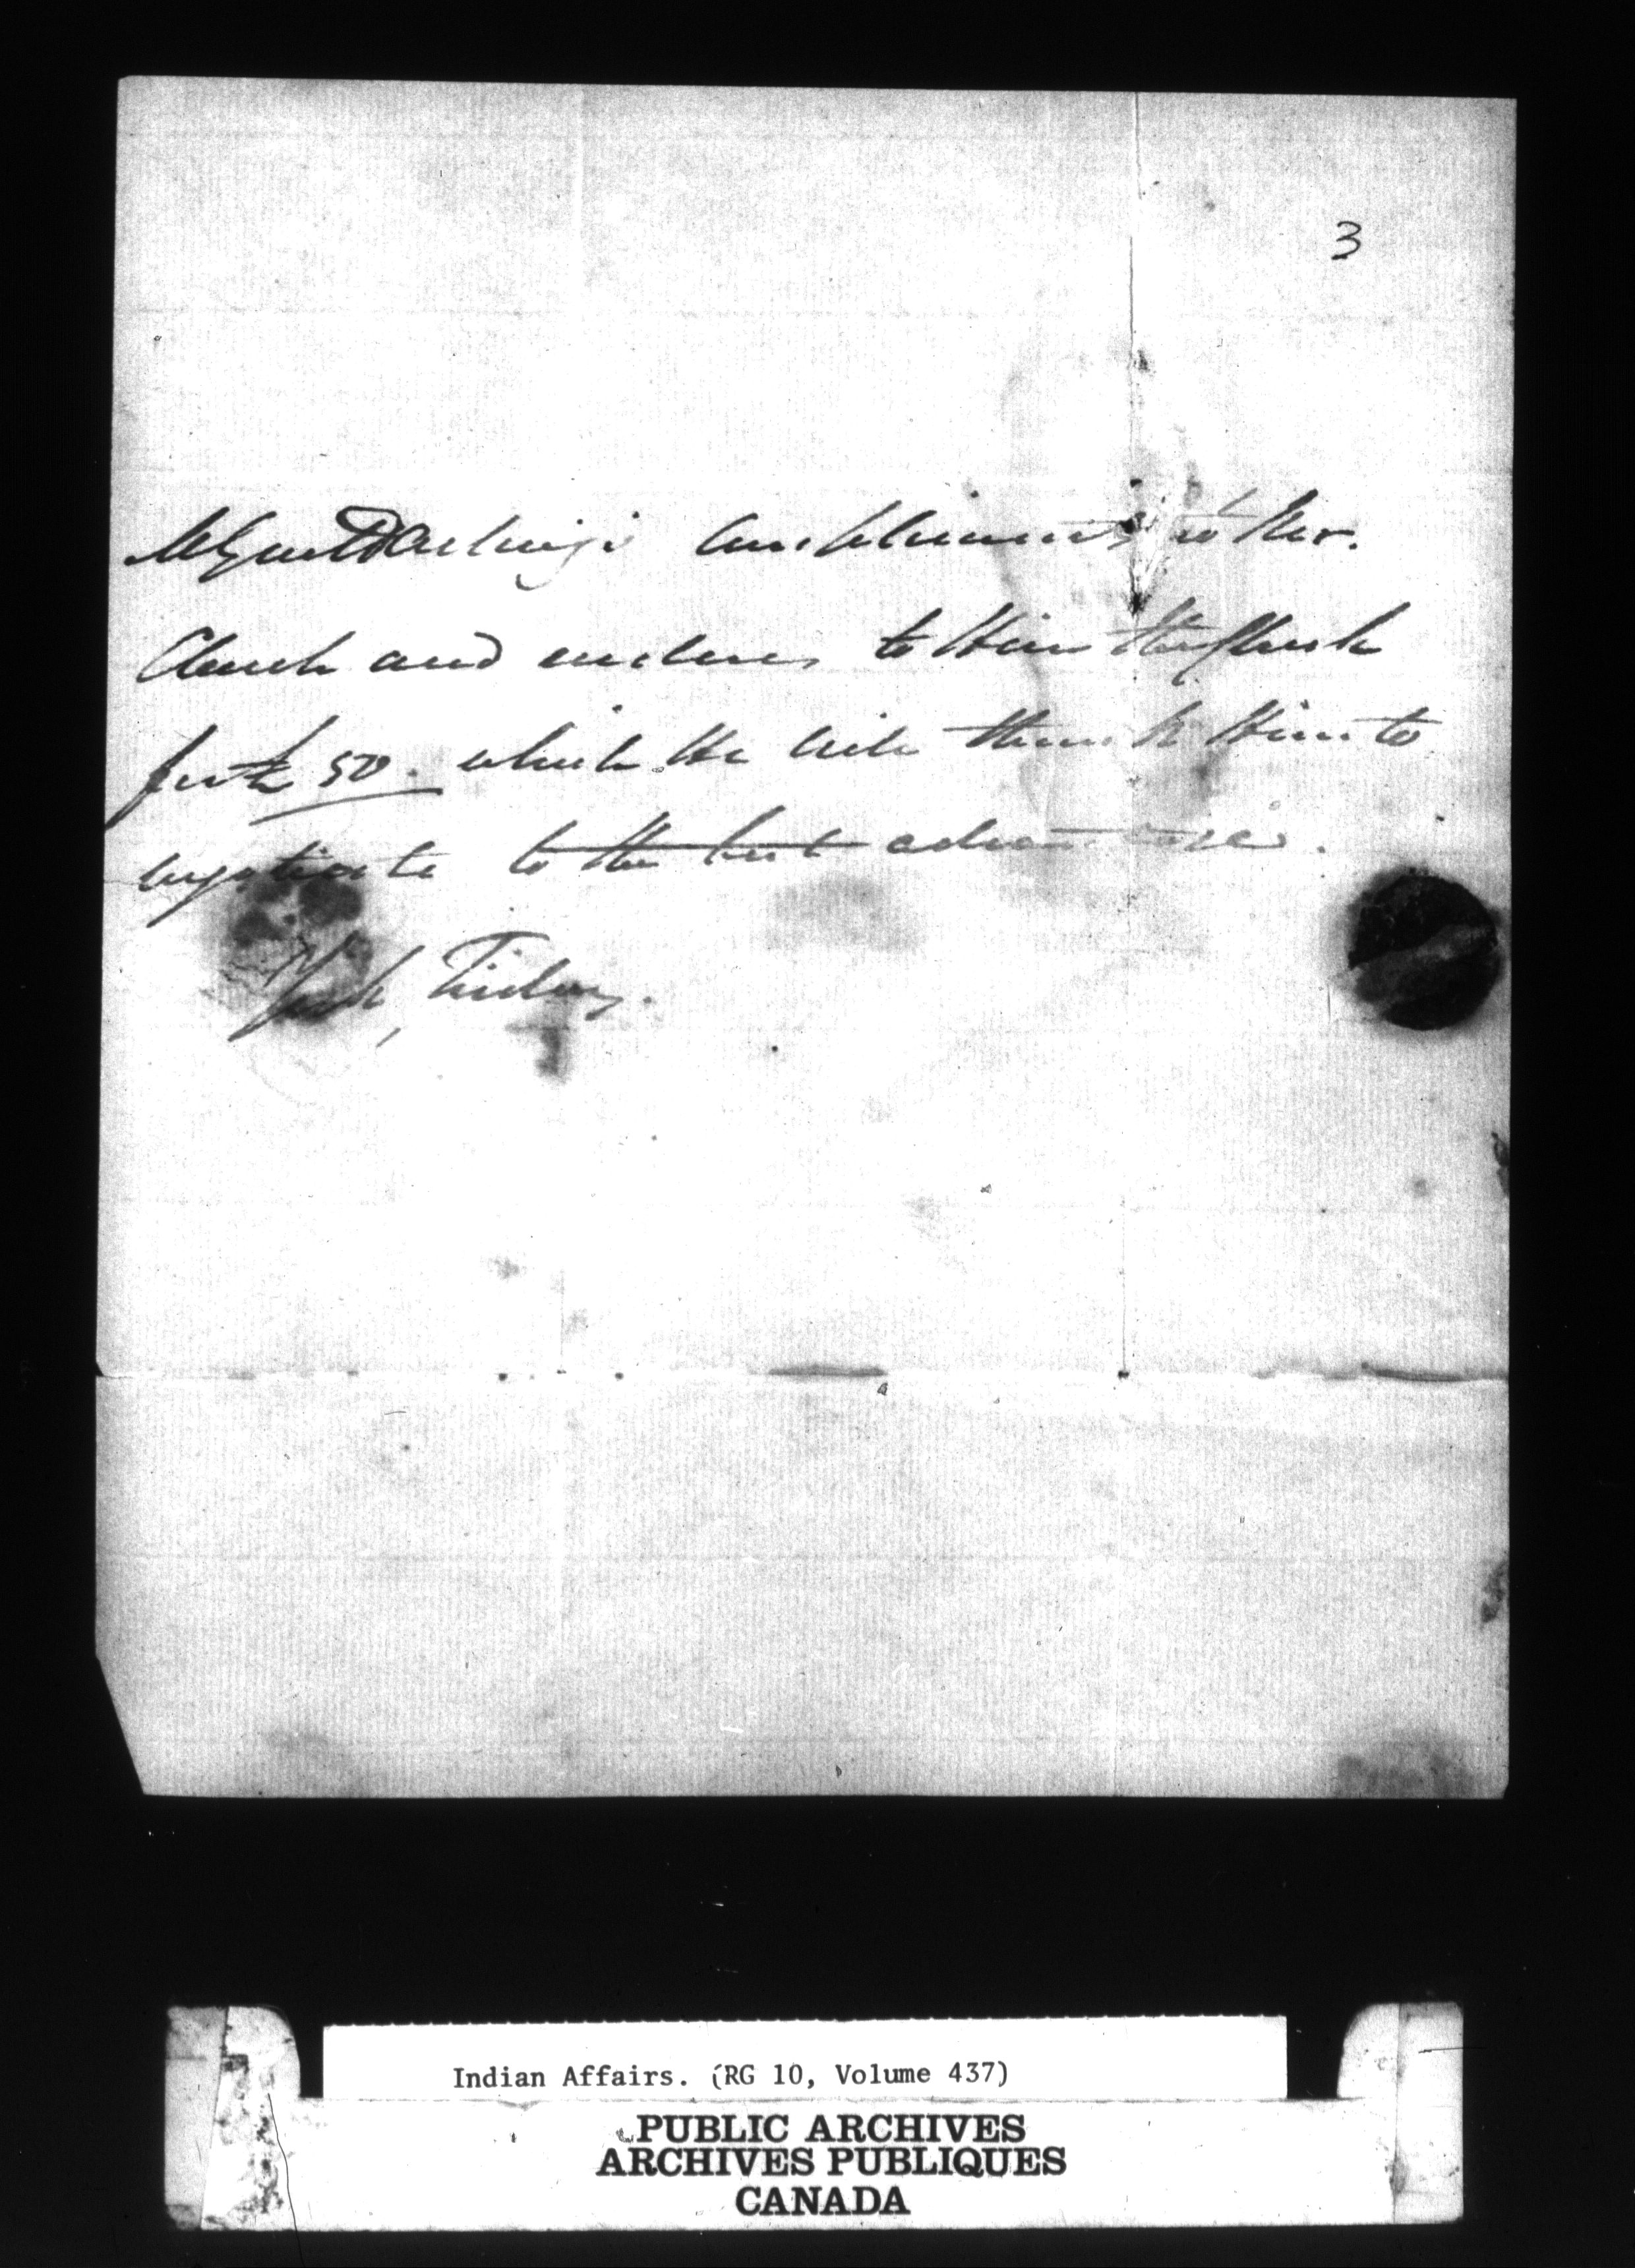 3
Darling's compliments to Mr.
Church and encloses to Him the Check
for £ 50. which He will thank Him to
negotiate to the best advantage.
Friday.
Indian Affairs. (RG 10, Volume 437)
PUBLIC ARCHIVES
ARCHIVES PUBLIQUES
CANADA